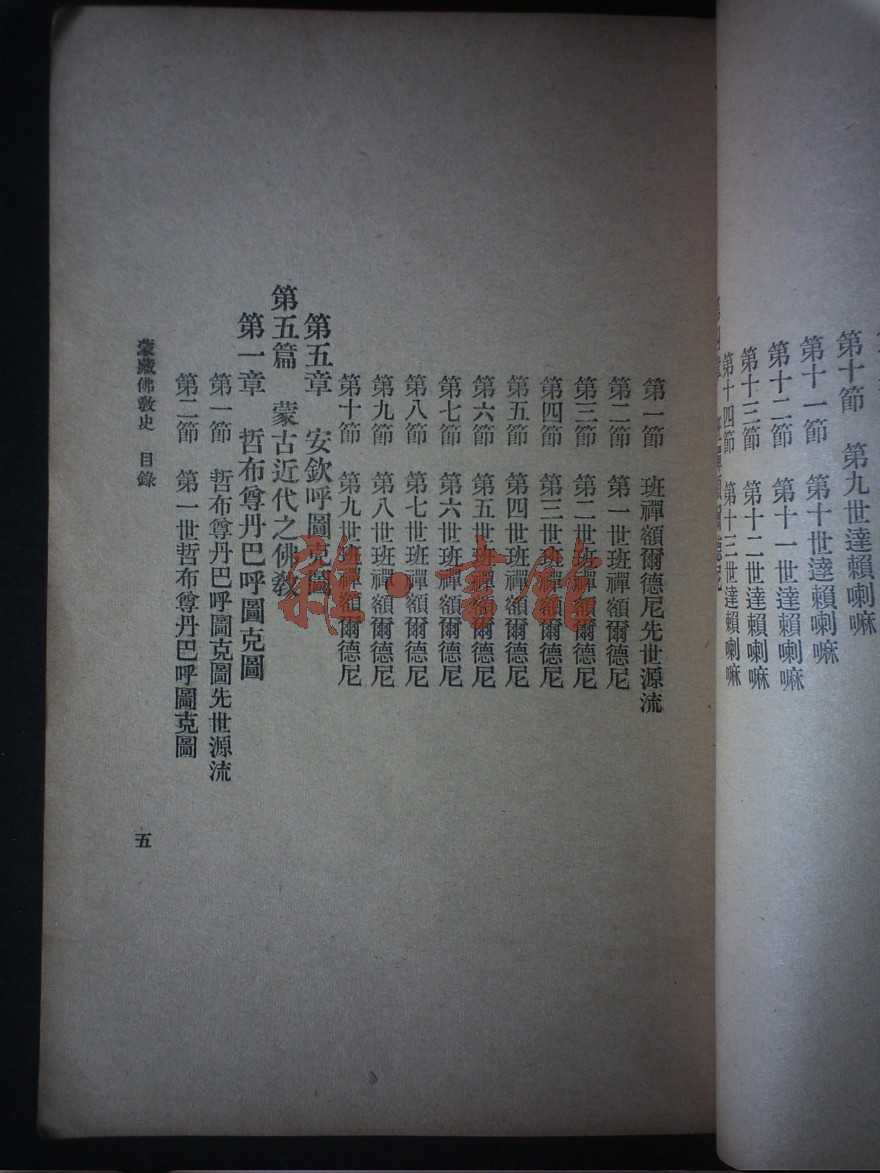 第十節　第九世達賴喇嘛
第十一節　第十世達賴喇嘛
第十二節　第十一世達賴喇嘛
第十三節　第十二世達賴喇嘛
第十四節　第十三世達賴喇嘛
第一節　班禪額爾德尼先世源流
第二節　第一世班禪額爾德尼
第三節　第二世班禪額爾德尼
第四節　第三世班禪額爾德尼
第五節　第四世班禪額爾德尼
第六節　第五世班禪額爾德尼
第七節　第六世班禪額爾德尼
第八節　第七世班禪額爾德尼
第九節　第八世班禪額爾德尼
第十節　第九世班禪額爾德尼
第五章　安欽呼圖克圖
第五篇　蒙古近代之佛教
第一章　哲布尊丹巴呼圖克圖
第一節　哲布尊丹巴呼圖克圖先世源流
第二節　第一世哲布尊丹巴呼圖克圖
蒙藏佛敎史　目錄
五
雜·書館